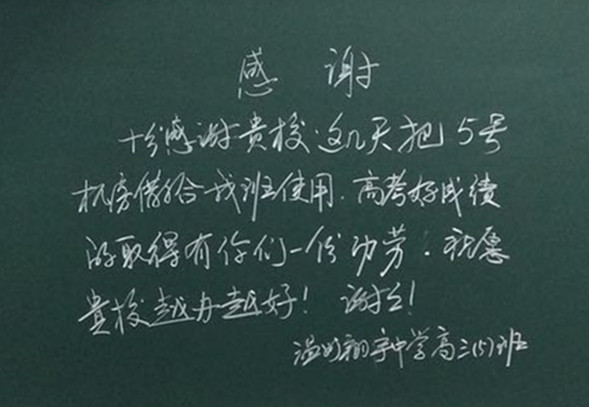 感 谢
十分感谢贵校这几天把5号
机房借给我班使用.高考好成绩
的取得有你们一份功劳.祝愿
贵校越办越好!谢谢!
温州翔宇中学高三(5)班